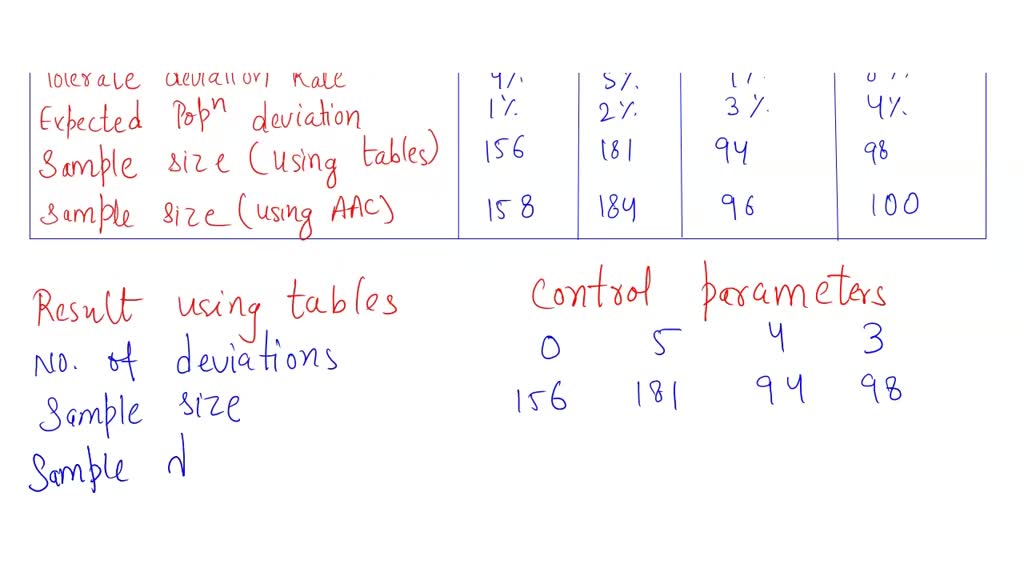 Tolerate deviation Rate 4% 5%
Expected Popⁿ deviation 1% 2% 3% 4%
Sample size (using tables) 156 181 94 98
Sample size (using AAC) 158 184 96 100
Result using tables Control parameters
No. of deviations 0 5 4 3
Sample size 156 181 94 98
Sample